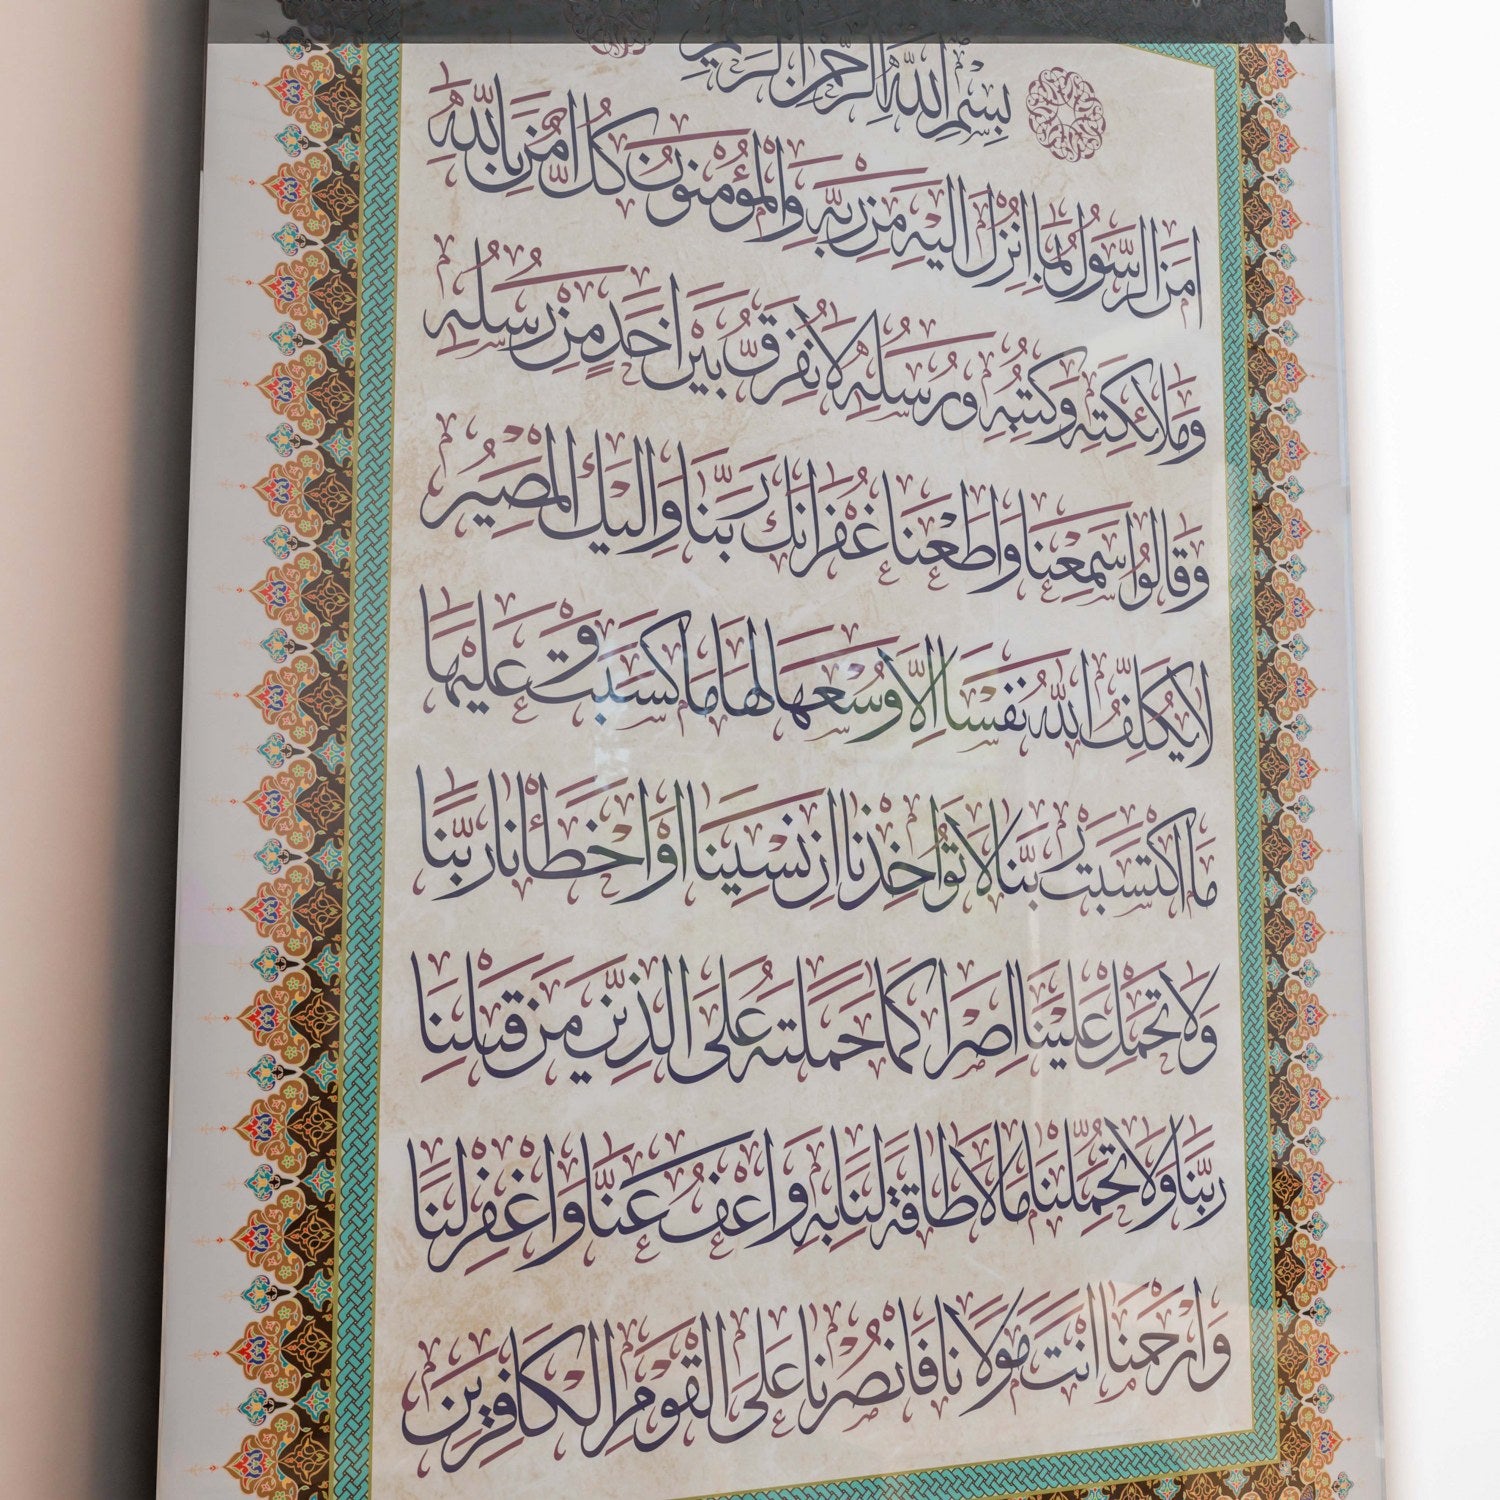 بِسْمِ اللَّهِ الرَّحْمٰنِ الرَّحِيمِ
اٰمَنَ الرَّسُولُ بِمَا اُنْزِلَ اِلَيْهِ مِنْ رَبِّهِ وَالْمُؤْمِنُونَ كُلٌّ اٰمَنَ بِاللّٰهِ
وَمَلَائِكَتِهِ وَكُتُبِهِ وَرُسُلِهِ لَا نُفَرِّقُ بَيْنَ اَحَدٍ مِنْ رُسُلِهِ
وَقَالُوا سَمِعْنَا وَاَطَعْنَا غُفْرَانَكَ رَبَّنَا وَاِلَيْكَ الْمَصِيرُ
لَا يُكَلِّفُ اللّٰهُ نَفْسًا اِلَّا وُسْعَهَا لَهَا مَا كَسَبَتْ وَعَلَيْهَا
مَا اكْتَسَبَتْ رَبَّنَا لَا تُؤَاخِذْنَا اِنْ نَسِينَا اَوْ اَخْطَأْنَا رَبَّنَا
وَلَا تَحْمِلْ عَلَيْنَا اِصْرًا كَمَا حَمَلْتَهُ عَلَى الَّذِينَ مِنْ قَبْلِنَا
رَبَّنَا وَلَا تُحَمِّلْنَا مَا لَا طَاقَةَ لَنَا بِهِ وَاعْفُ عَنَّا وَاغْفِرْ لَنَا
وَارْحَمْنَا اَنْتَ مَوْلَانَا فَانْصُرْنَا عَلَى الْقَوْمِ الْكَافِرِينَ